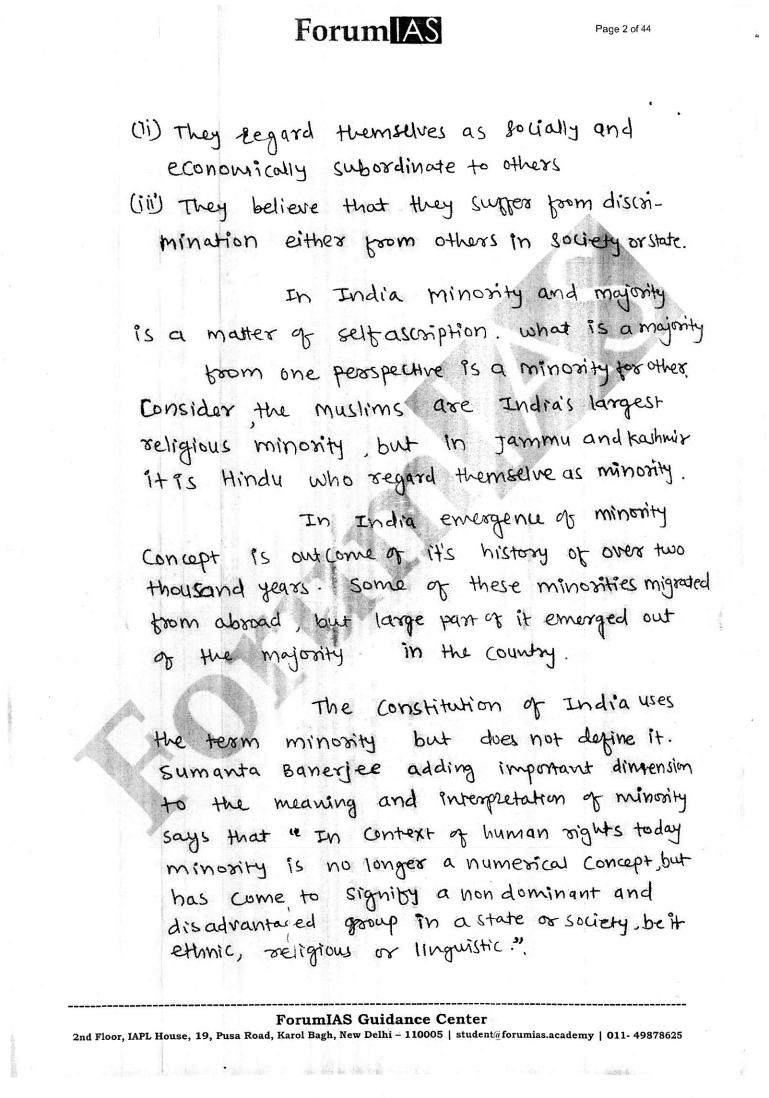 ForumIAS
Page 2 of 44
(ii) They regard themselves as socially and
economically subordinate to others
(iii) They believe that they suffer from discri-
mination either from others in society or state.
In India minority and majority
is a matter of self ascription. what is a majority
from one perspective is a minority for other.
Consider, the muslims are India's largest
religious minority, but in Jammu and Kashmir
it is Hindu who regard themselve as minority.
In India emergence of minority
concept is outcome of it's history of over two
thousand years. Some of these minorities migrated
from abroad, but large part of it emerged out
of the majority in the country.
The Constitution of India uses
the term minority but does not define it.
Sumanta Banerjee adding important dimension
to the meaning and interpretation of minority
says that "In Context of human rights today
minority is no longer a numerical concept, but
has come to signify a non dominant and
disadvantaged group in a state or society, be it
ethnic, religious or linguistic.".
ForumIAS
ForumIAS Guidance Center
2nd Floor, IAPL House, 19, Pusa Road, Karol Bagh, New Delhi – 110005 | student@forumias.academy | 011- 49878625